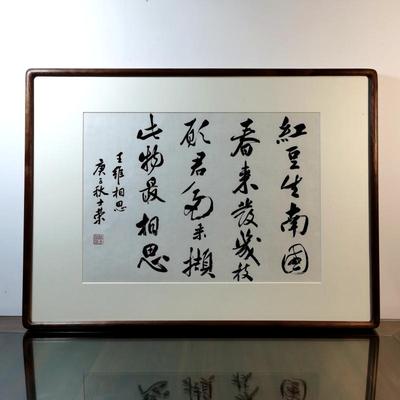 紅豆生南國
春来發幾枝
願君多采擷
此物最相思
王維相思
庚子秋士榮